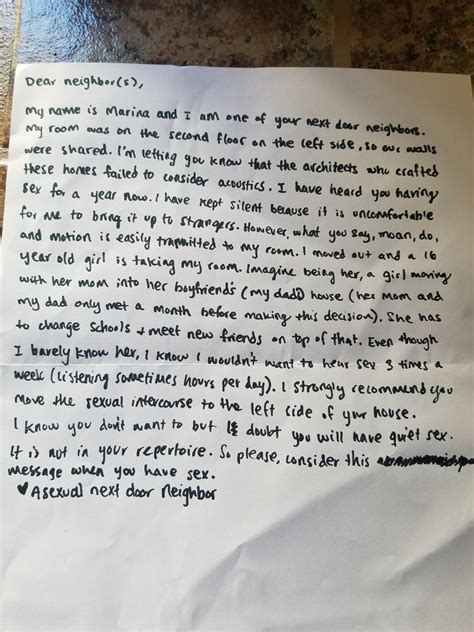 Dear neighbor(s),
My name is Marina and I am one of your next door neighbors.
My room was on the second floor on the left side, so our walls
were shared. I'm letting you know that the architects who crafted
these homes failed to consider acoustics. I have heard you having
sex for a year now. I have kept silent because it is uncomfortable
for me to bring it up to strangers. However, what you say, moan, do,
and motion is easily tranmitted to my room. I moved out and a 16
year old girl is taking my room. Imagine being her, a girl moving
with her mom into her boyfriend's (my dad's) house (her mom and
my dad only met a month before making this decision). She has
to change schools + meet new friends on top of that. Even though
I barely know her, I know I wouldn't want to hear sex 3 times a
week (listening sometimes hours per day). I strongly recommend you
move the sexual intercourse to the left side of your house.
I know you don't want to but I doubt you will have quiet sex.
It is not in your repertoire. So please, consider this
message when you have sex.
♥ Asexual next door neighbor